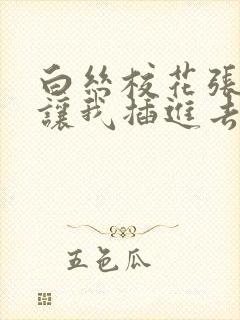 白丝校花張
讓我插進去
五色瓜